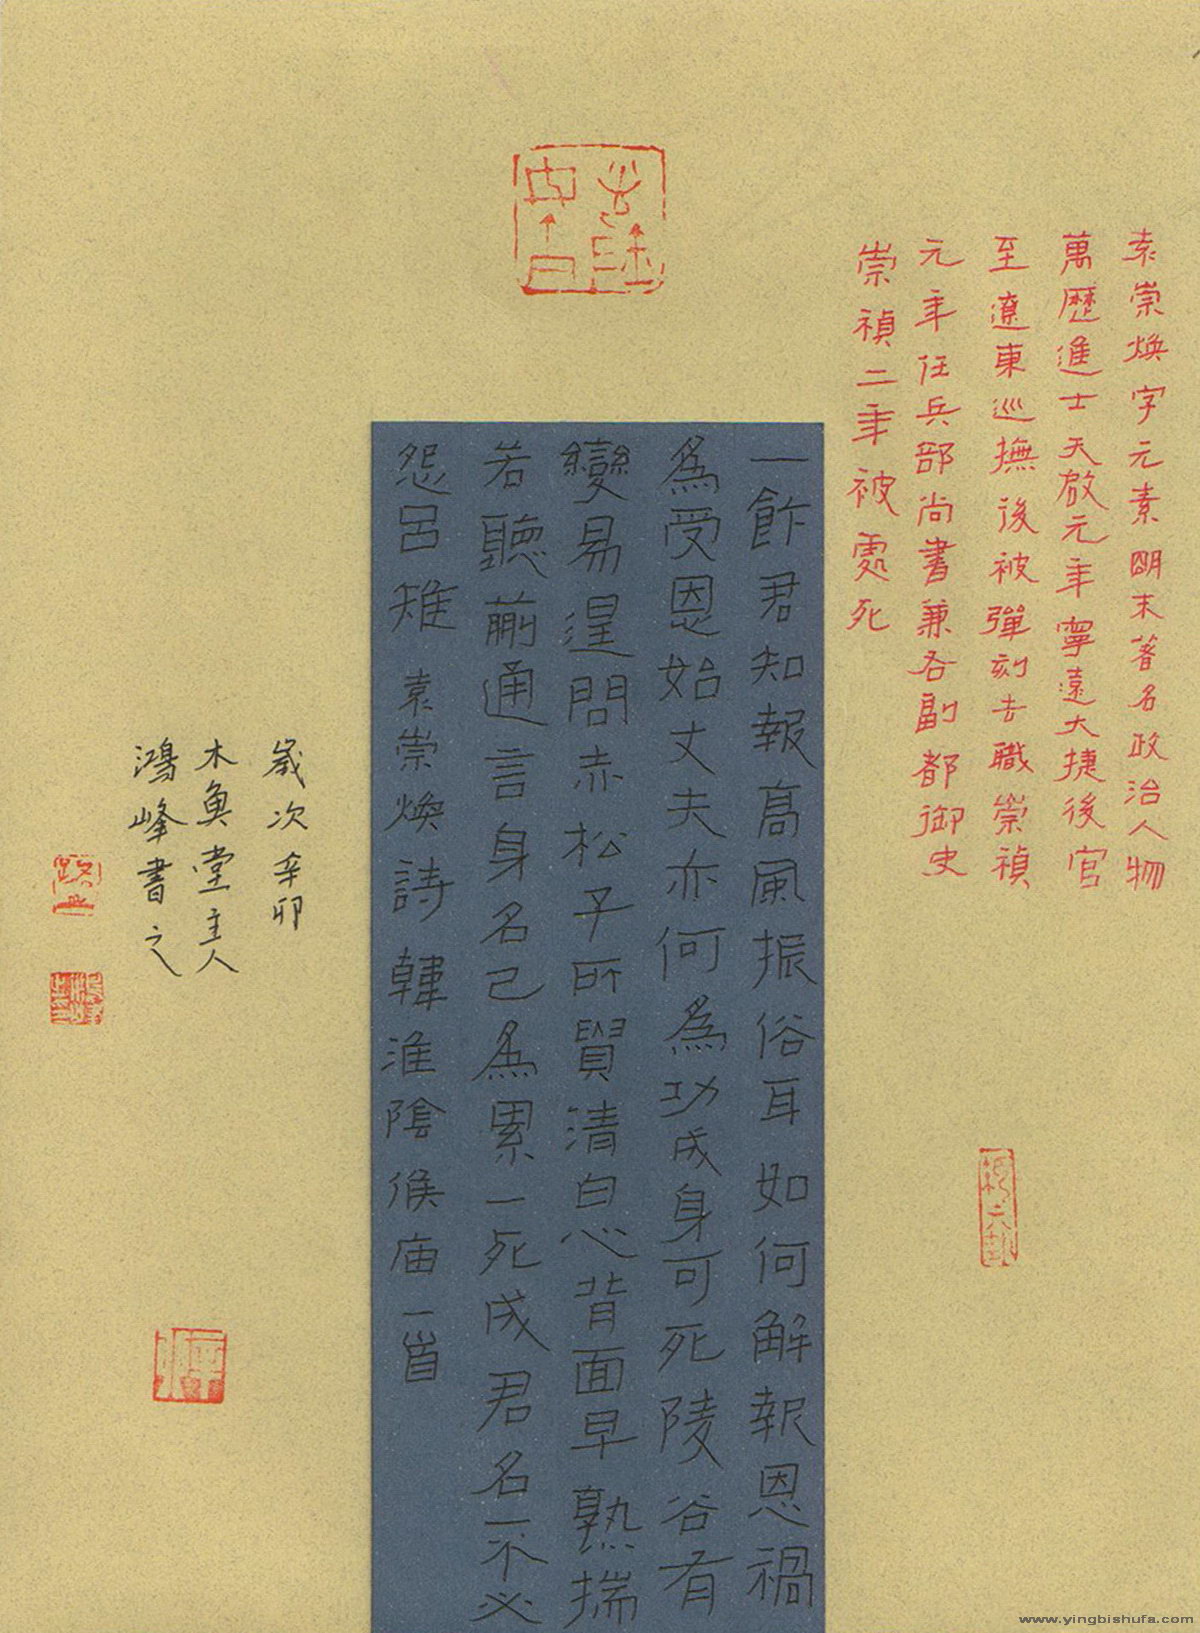 袁崇焕字元素明末著名政治人物
萬歷進士天啟元年寧遠大捷後官
至遼東巡撫後被彈刻去職崇禎
元年任兵部尚書兼右副都御史
崇禎二年被處死
一飰君知報高風振俗耳如何解報恩禍
為受恩始丈夫亦何為功成身可死陵谷有
變易遑問赤松子所貿清白心背面早熟揣
若聽蒯通言身名已為累一死成君名不必
怨呂雉 袁崇焕詩韓淮陰侯庙一首
歲次辛卯
木魚堂主人
鴻峰書之
www.yingbishufa.com